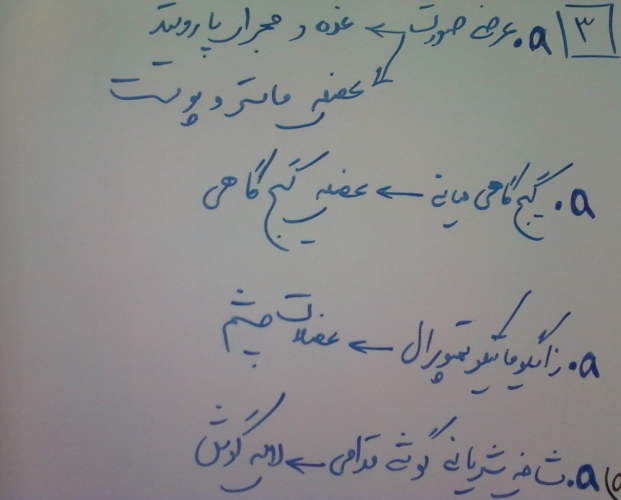 ۳ a. عرضی صورت ← غده و مجرای پاروتید
← عضله ماستر و پوست
a. گیج گاهی میانی ← عضله گیج گاهی
a. زایگوماتیکو تمپورال ← عضلات چشم
a. شاخه شریانی گوشی قدامی ← لاله گوش